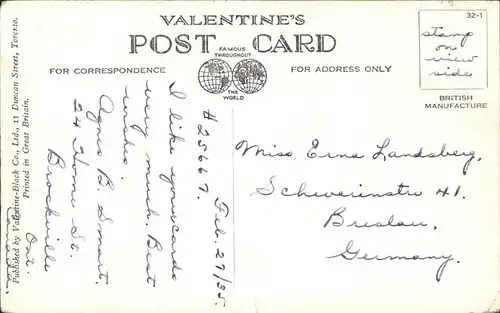 VALENTINE'S
POST CARD
FAMOUS
THROUGHOUT
THE
WORLD
FOR CORRESPONDENCE
FOR ADDRESS ONLY
32-1
stamp
on
view
side
BRITISH
MANUFACTURE
Published by Valentine-Black Co., Ltd., 11 Duncan Street, Toronto.
Printed in Great Britain.
# 25667. Feb. 27/35.
I like your cards
very much. Best
wishes.
Agnes B. Smart.
24 Home St.
Brockville
Ont.
Canada.
Miss Erna Landsberg,
Schwerinstr 41.
Breslau,
Germany.